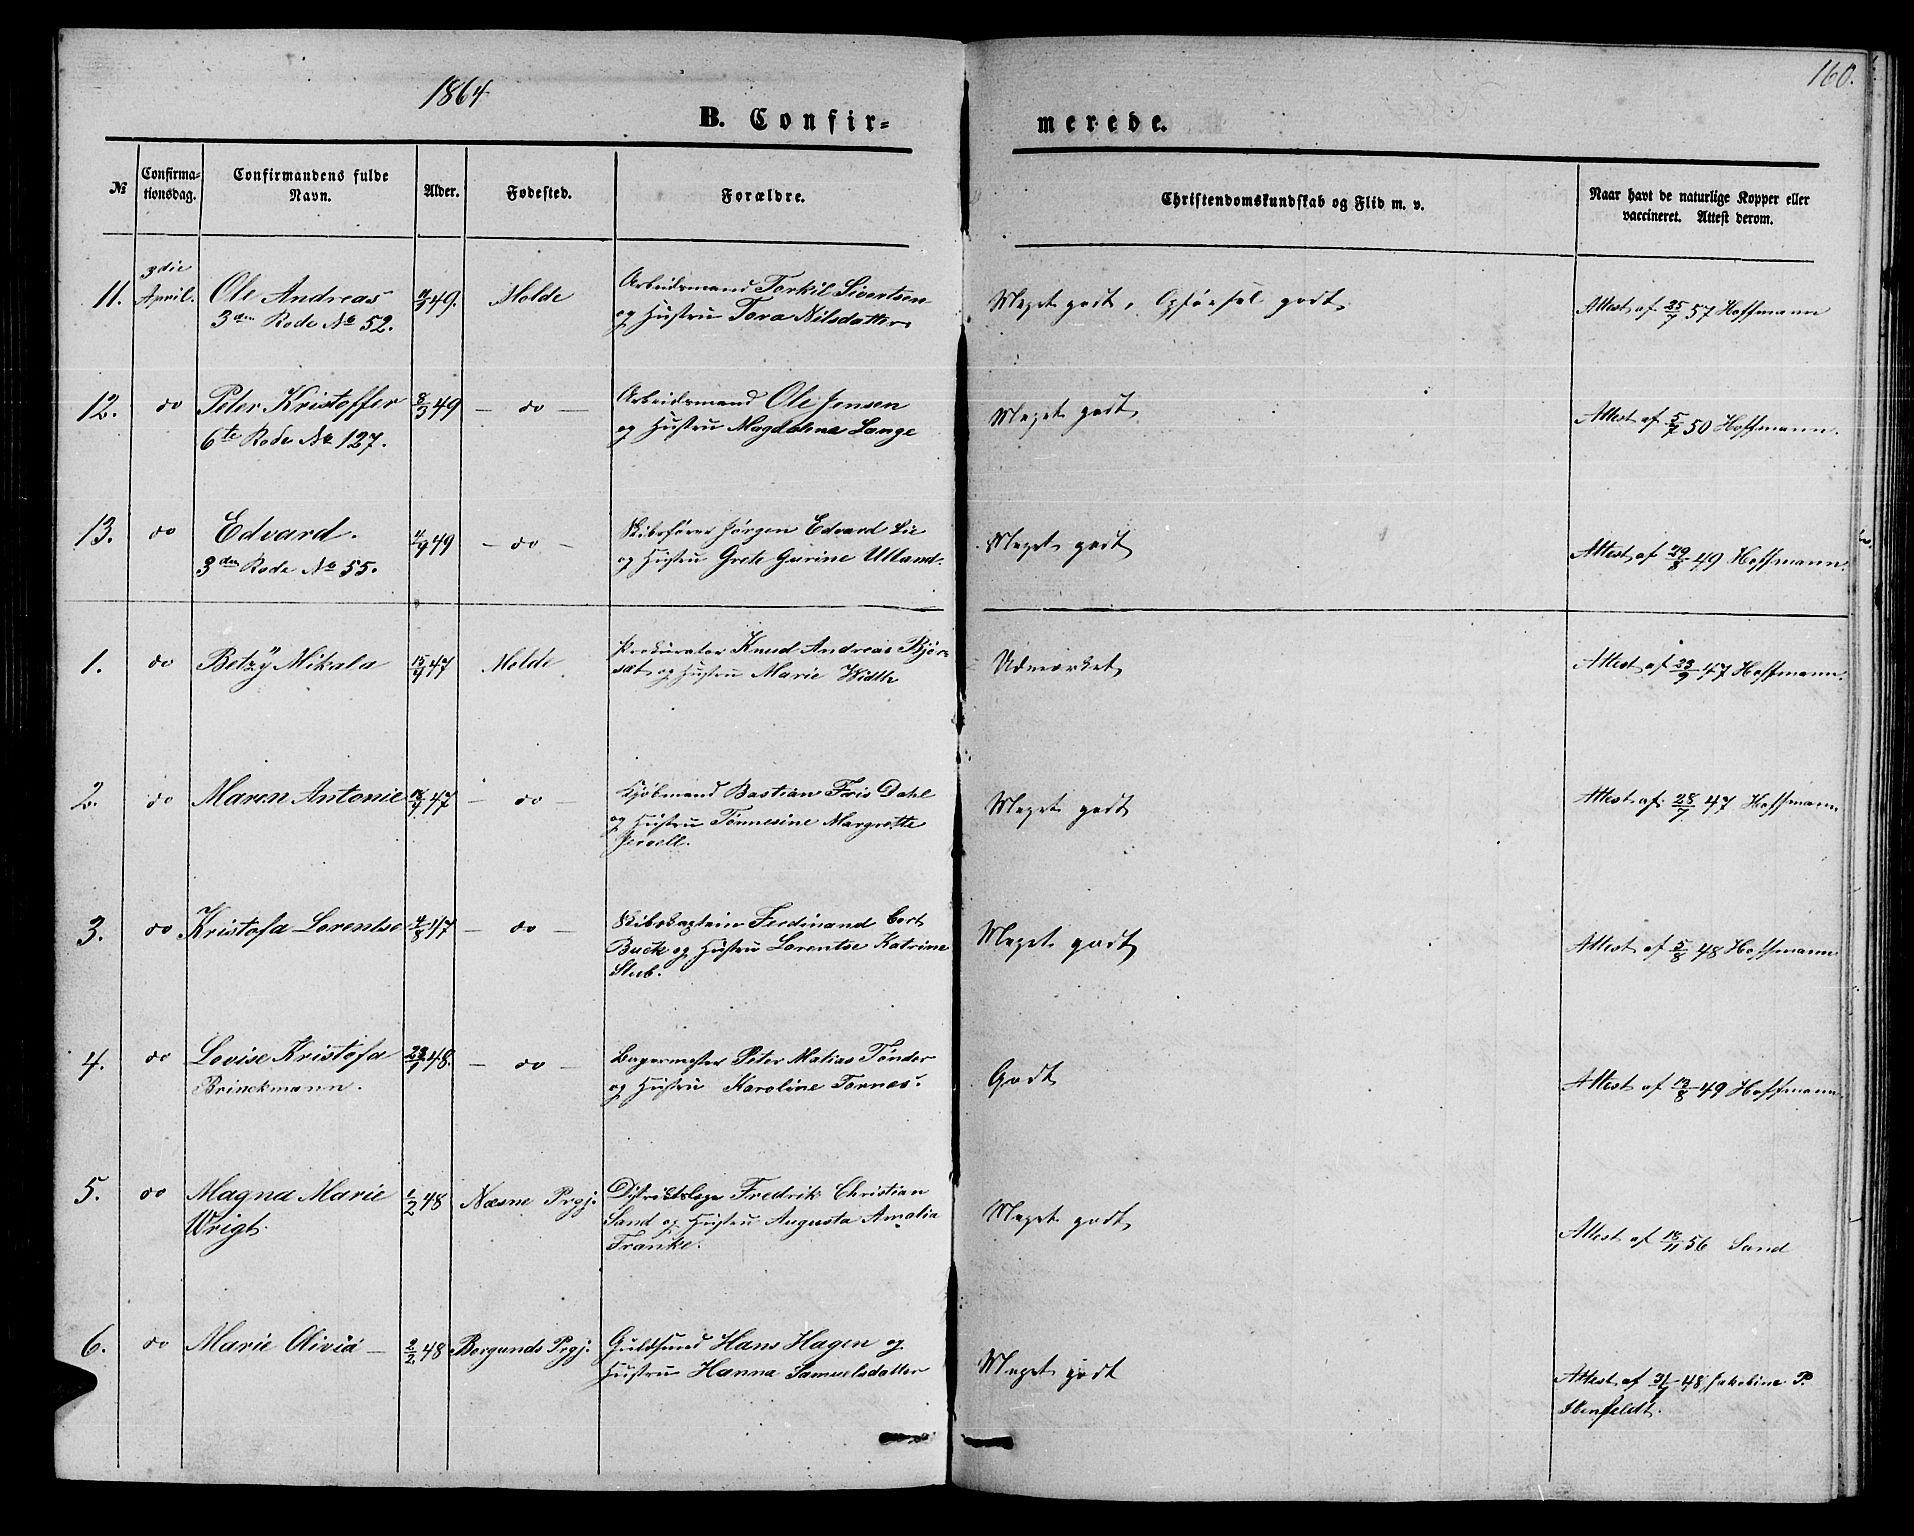 1864
160.
B. Confir=
merede.
№ Confirma-tionsdag. Confirmandens fulde Navn. Alder. Fødested. Forældre. Christendomskundskab og Flid m. v. Naar havt de naturlige Kopper eller vaccineret. Attest derom.
11. 3die April. Ole Andreas 49. Molde Arbeidsmand Torkil Sivertsen Meget godt, Opførsel godt. Attest af 25/7 57 Hoffmann
3den Rode No 52. og Hustru Tora Nilsdatter
12. do Peter Kristoffer 8/3 49 — do — Arbeidsmand Ole Jensen Meget godt Attest af 5/7 50 Hoffmann.
6te Rode No 127. og Hustru Magdalena Lange
13. do Edvard. 4/9 49 — do — Skibsfører Jørgen Edvard Lie Meget godt Attest af 29/8 49 Hoffmann.
3den Rode No 55. og Hustru Grete Gurine Ulland.
1. do Betzÿ Mikala 47 Molde Prokurator Knud Andreas Bjør- Udmærket Attest af 23/9 47 Hoffmann.
sæt og Hustru Marie Width
2. do Maren Antonie 47 — do — Kjøbmand Bastian Fris Dahl Meget godt Attest af 28/7 47 Hoffmann
og Hustru Tønnesine Margrette
Jervell.
3. do Kristofa Lorentse 4/8 47 — do — Skibskaptein Ferdinand Cort Meget godt Attest af 5/8 48 Hoffmann
Buck og Hustru Lorentse Katrine
Stub.
4. do Lovise Kristofa 48. — do — Bagermester Peter Matias Tønder Godt Attest af 12/8 49 Hoffmann
Brinckmann. og Hustru Karoline Tornes.
5. do Magna Marie 1/2 48 Næsne Prgj. Distriktslæge Fredrik Christian Meget godt Attest af 18/11 56 Sand
Wrigt. Sand og Hustru Augusta Amalia
Franke.
6. do Marie Olivia — 2/2 48 Borgunds Prgj. Guldsmed Hans Hagen og Meget godt Attest af 48 Jakobine P.
Hustru Hanna Samuelsdatter Ibenfeldt.